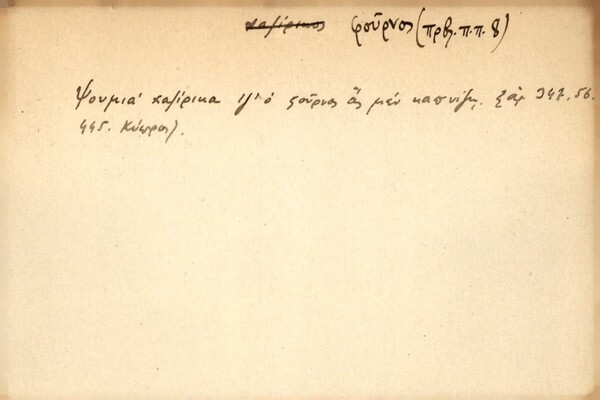 χαζίρικος φοῦρνος (πρβ. π.π. 8)
Ψουμιὰ χαζίρικα τζ' ὁ φοῦρνος ἄς μὲν καπνίζῃ. 347, 56.
445. Κύπρος).